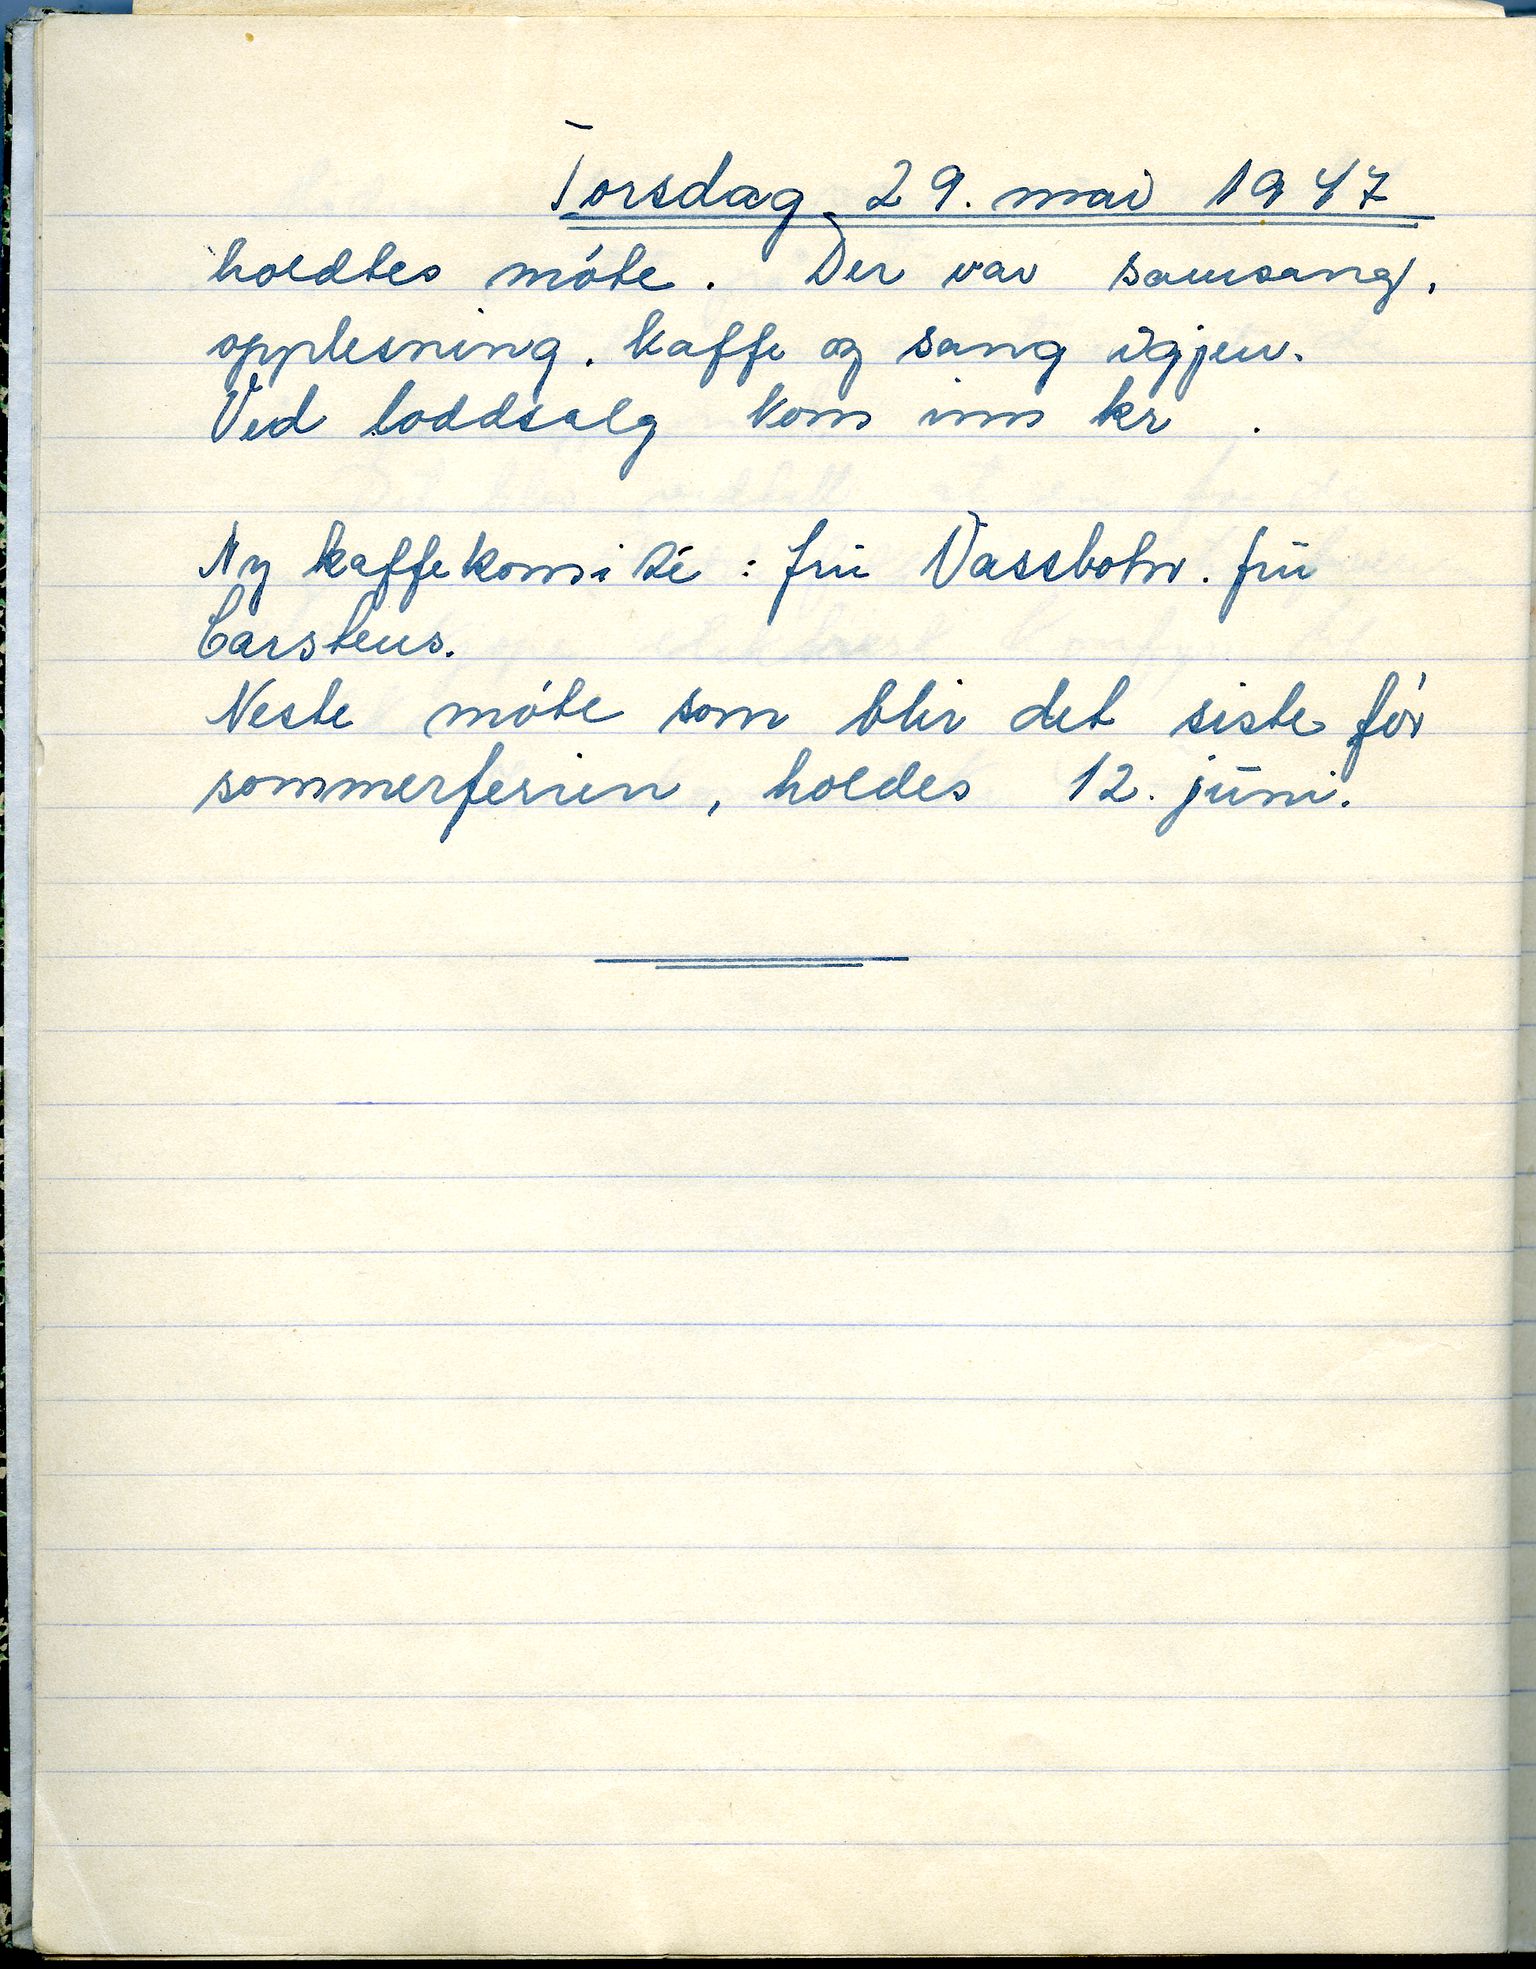 Torsdag 29. mai 1947
holdtes møte. Der var samsang,
opplesning. kaffe og sang igjen.
Ved loddsalg kom inn kr .
Ny kaffekomité : fru Vassbotn. fru
Carstens.
Neste møte som blir det siste før
sommerferien, holdes 12. juni.